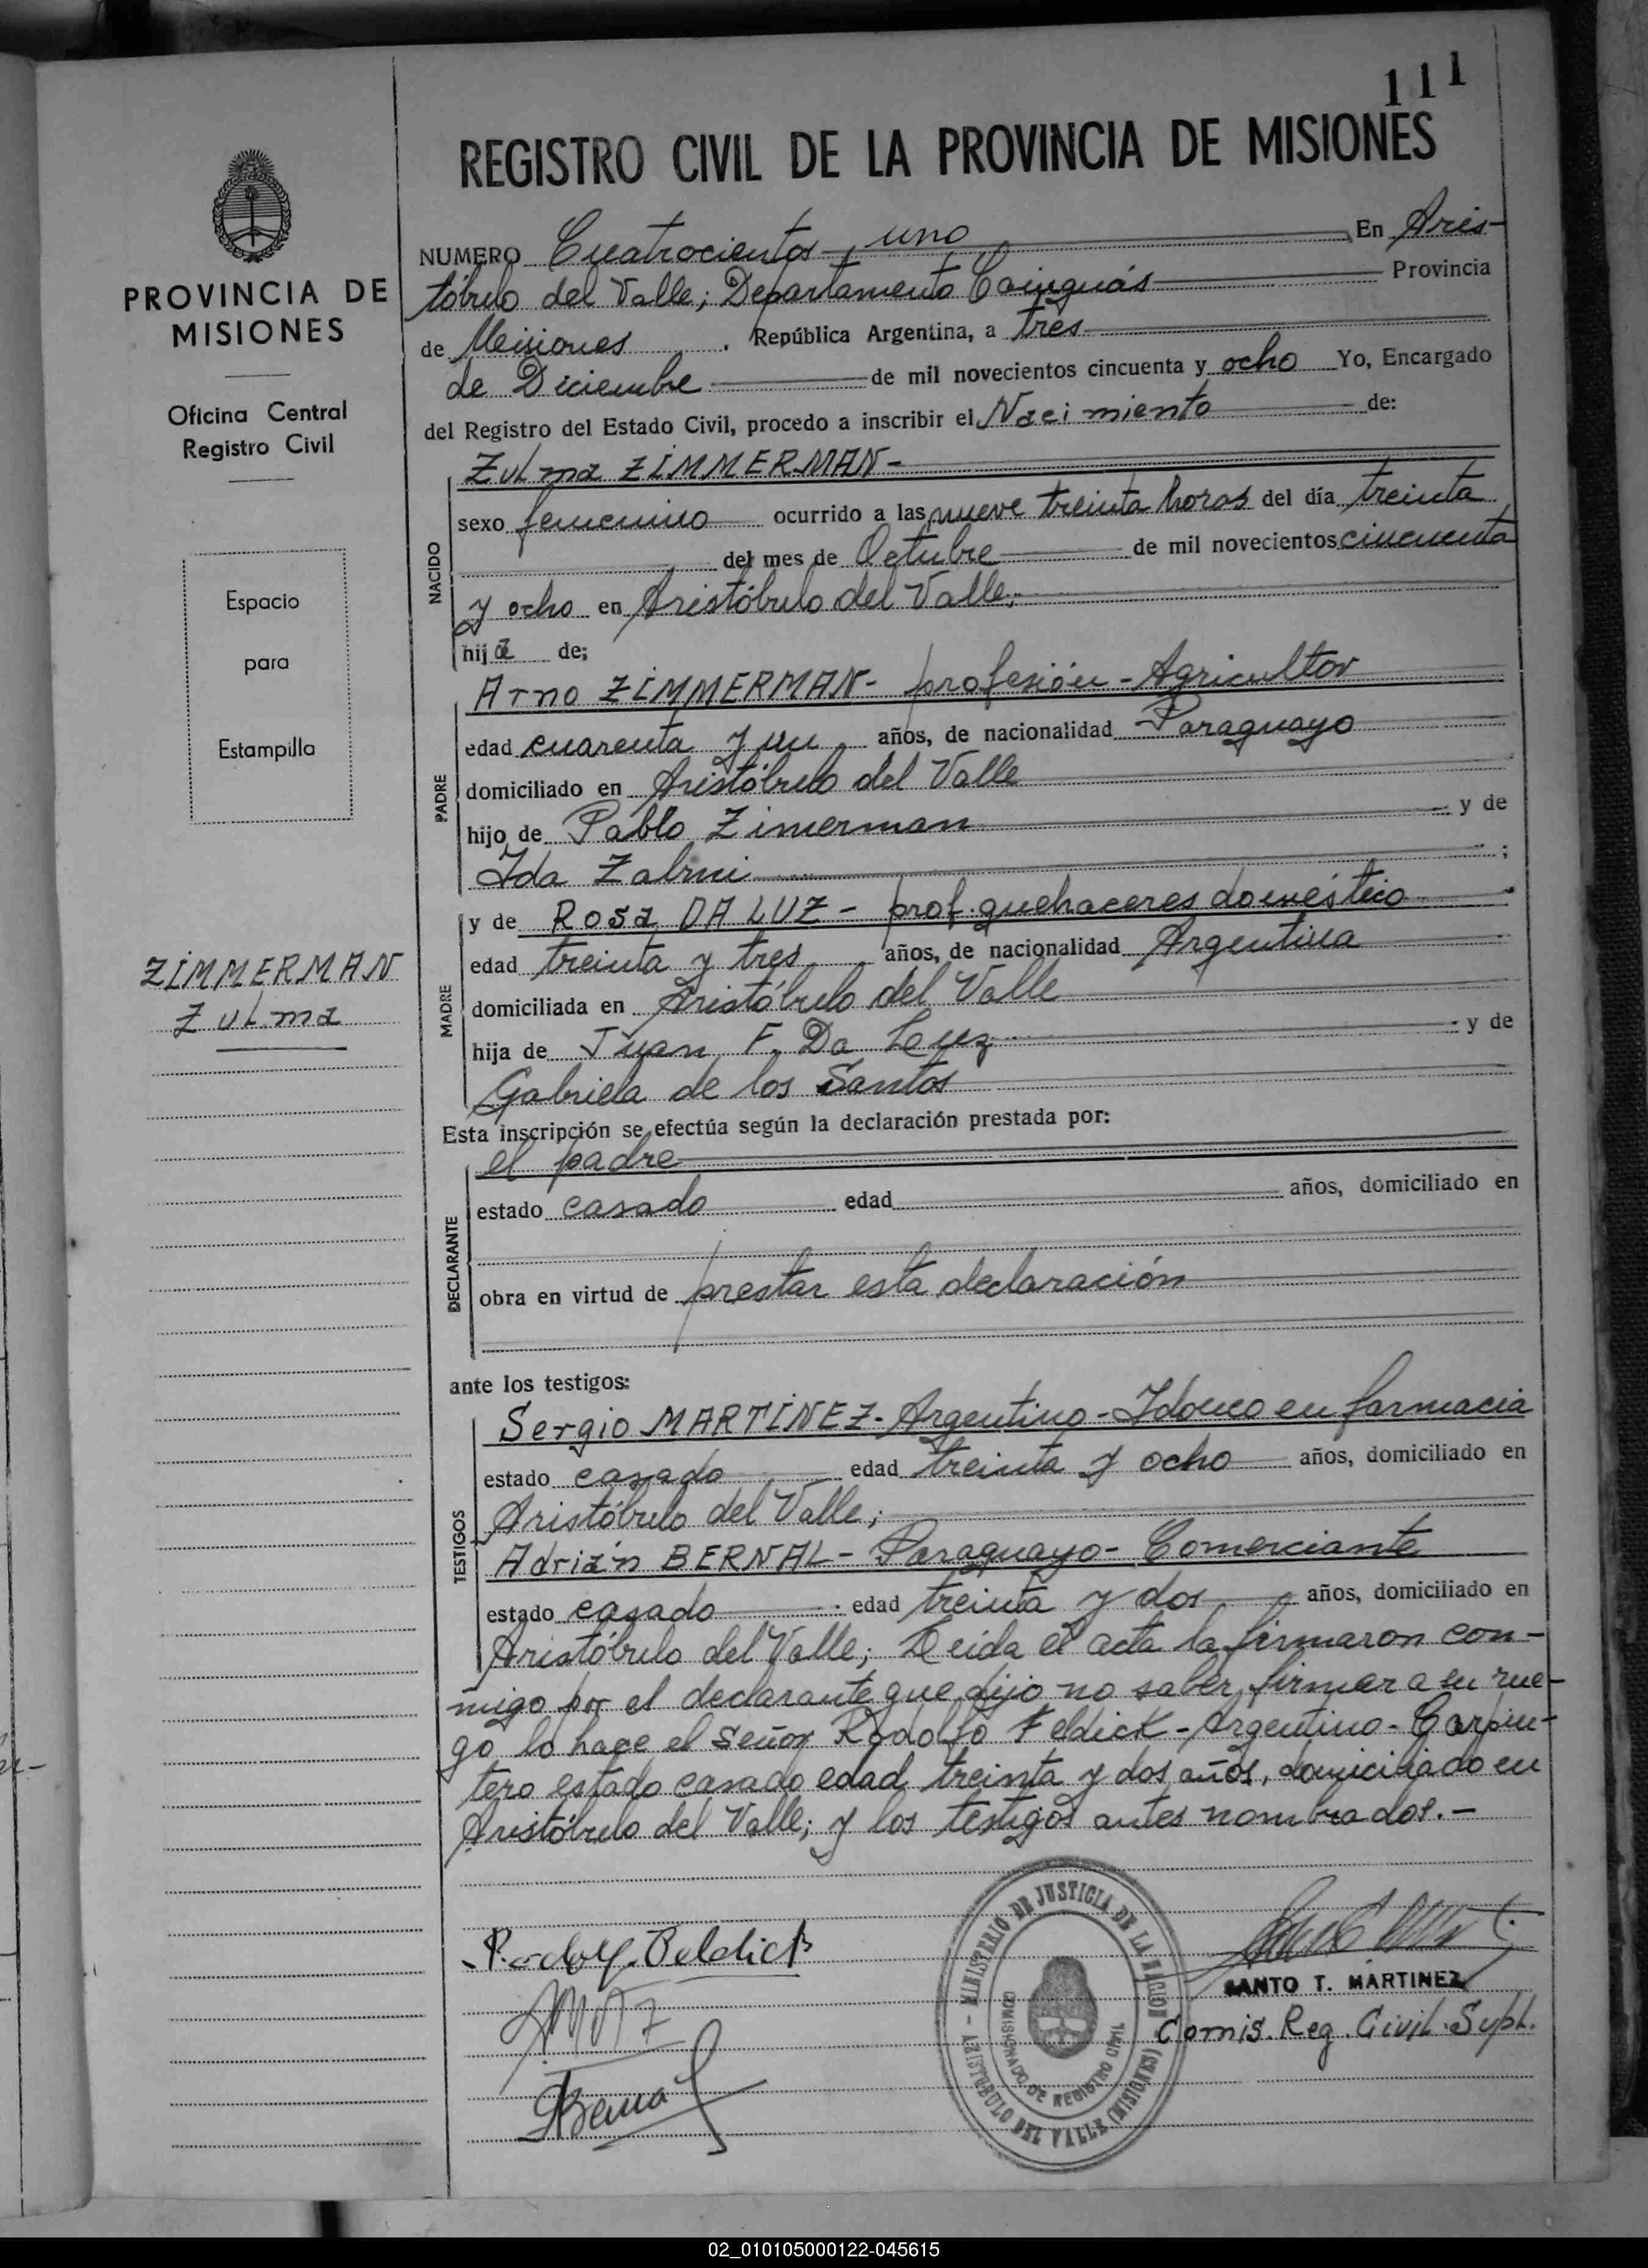 111
REGISTRO CIVIL DE LA PROVINCIA DE MISIONES
PROVINCIA DE
MISIONES
Oficina Central
Registro Civil
Espacio
para
Estampilla
ZIMMERMAN
Zulma
NUMERO Cuatrocientos uno En Aris-
tóbulo del Valle; Departamento Cainguás Provincia
de Misiones República Argentina, a tres
de Diciembre de mil novecientos cincuenta y ocho Yo, Encargado
del Registro del Estado Civil, procedo a inscribir el Nacimiento de:
NACIDO
Zulma ZIMMERMAN-
sexo femenino ocurrido a las nueve treinta horas del día treinta
del mes de Octubre de mil novecientos cincuenta
y ocho en Aristóbulo del Valle;
hija de;
PADRE
Arno ZIMMERMAN- profesión - Agricultor
edad cuarenta y un años, de nacionalidad Paraguayo
domiciliado en Aristóbulo del Valle
hijo de Pablo Zimerman y de
Ida Zalmi ;
MADRE
y de Rosa DA LUZ - prof. quehaceres doméstico
edad treinta y tres años, de nacionalidad Argentina
domiciliada en Aristóbulo del Valle
hija de Juan F. Da Luz y de
Gabriela de los Santos
Esta inscripción se efectúa según la declaración prestada por:
DECLARANTE
el padre
estado casado edad años, domiciliado en
obra en virtud de prestar esta declaración
ante los testigos:
TESTIGOS
Sergio MARTINEZ- Argentino - Idoneo en farmacia
estado casado edad treinta y ocho años, domiciliado en
Aristóbulo del Valle;
Adrián BERNAL - Paraguayo - Comerciante
estado casado edad treinta y dos años, domiciliado en
Aristóbulo del Valle; Leida el acta la firmaron con-
migo por el declarante que dijo no saber firmar a su rue-
go lo hace el Señor Rodolfo Feldick - Argentino - Carpin-
tero estado casado edad treinta y dos años, domiciliado en
Aristóbulo del Valle; y los testigos antes nombrados.-
MINISTERIO DE JUSTICIA DE LA NACION
COMISIONADO DE REGISTRO CIVIL
ARISTOBULO DEL VALLE (MISIONES)
SANTO T. MARTINEZ
Comis. Reg. Civil. Supl.
02_010105000122-045615